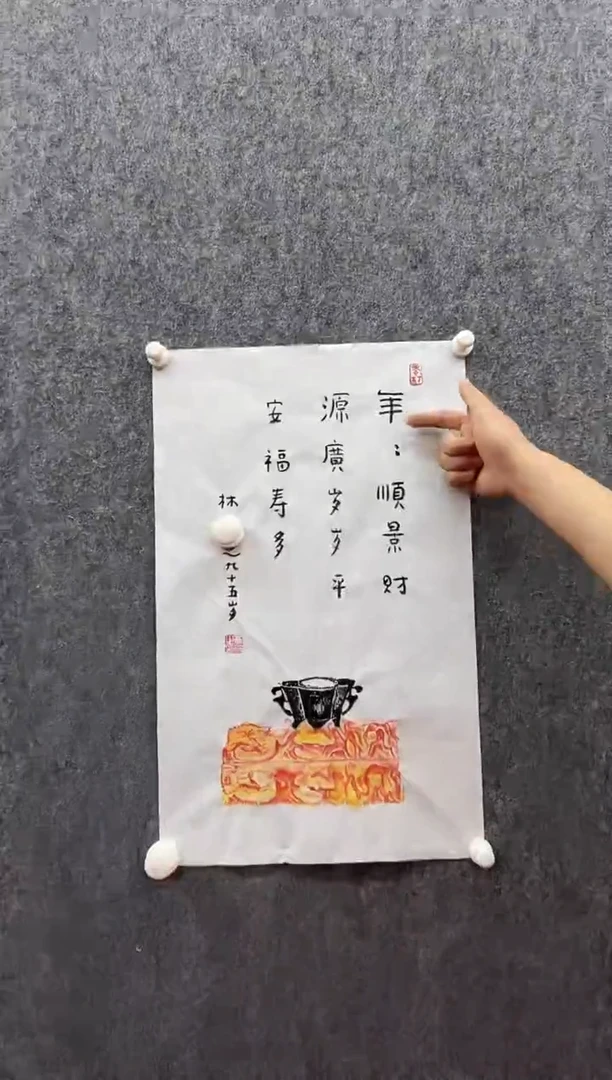 年〻順景財
源廣岁岁平
安福寿多
林之九十五岁